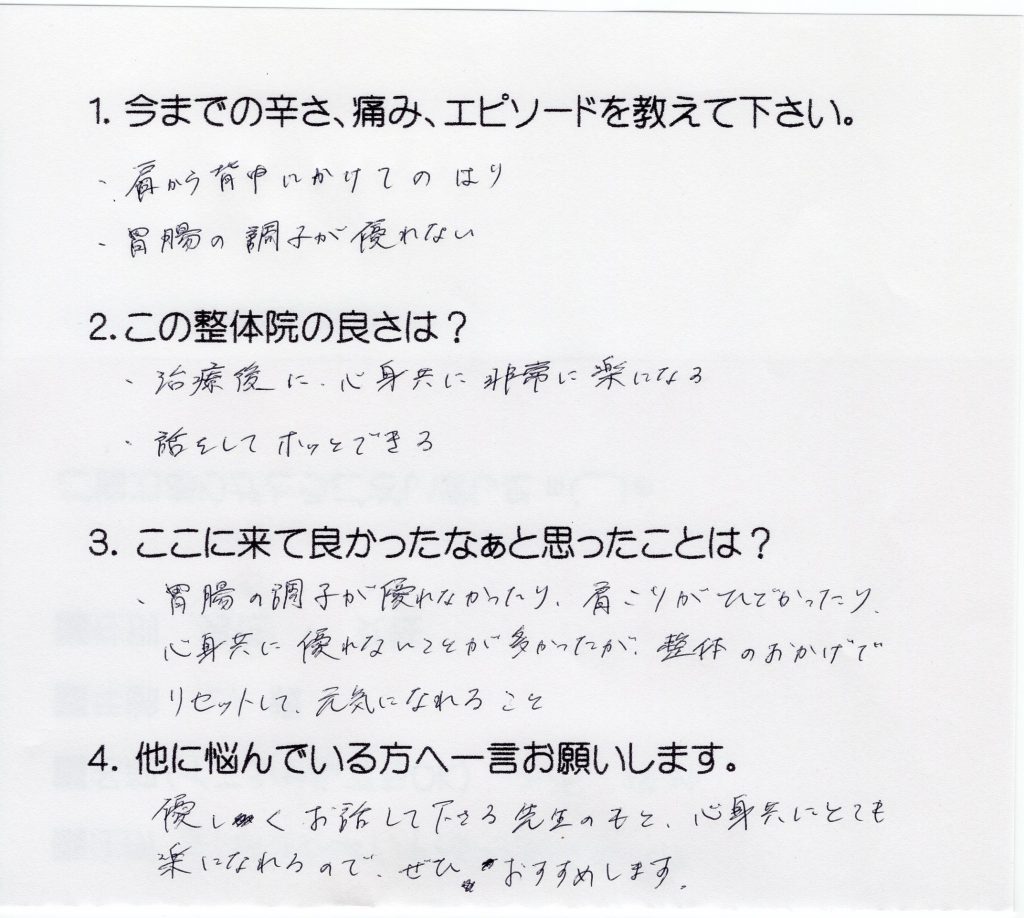 1. 今までの辛さ、痛み、エピソードを教えて下さい。
・肩から背中にかけてのはり
・胃腸の調子が優れない
2. この整体院の良さは？
・治療後に、心身共に非常に楽になる
・話をしてホッとできる
3. ここに来て良かったなぁと思ったことは？
・胃腸の調子が優れなかったり、肩こりがひどかったり、
心身共に優れないことが多かったが、整体のおかげで
リセットして、元気になれること
4. 他に悩んでいる方へ一言お願いします。
優しくお話して下さる先生のもと、心身共にとても
楽になれるので、ぜひおすすめします。